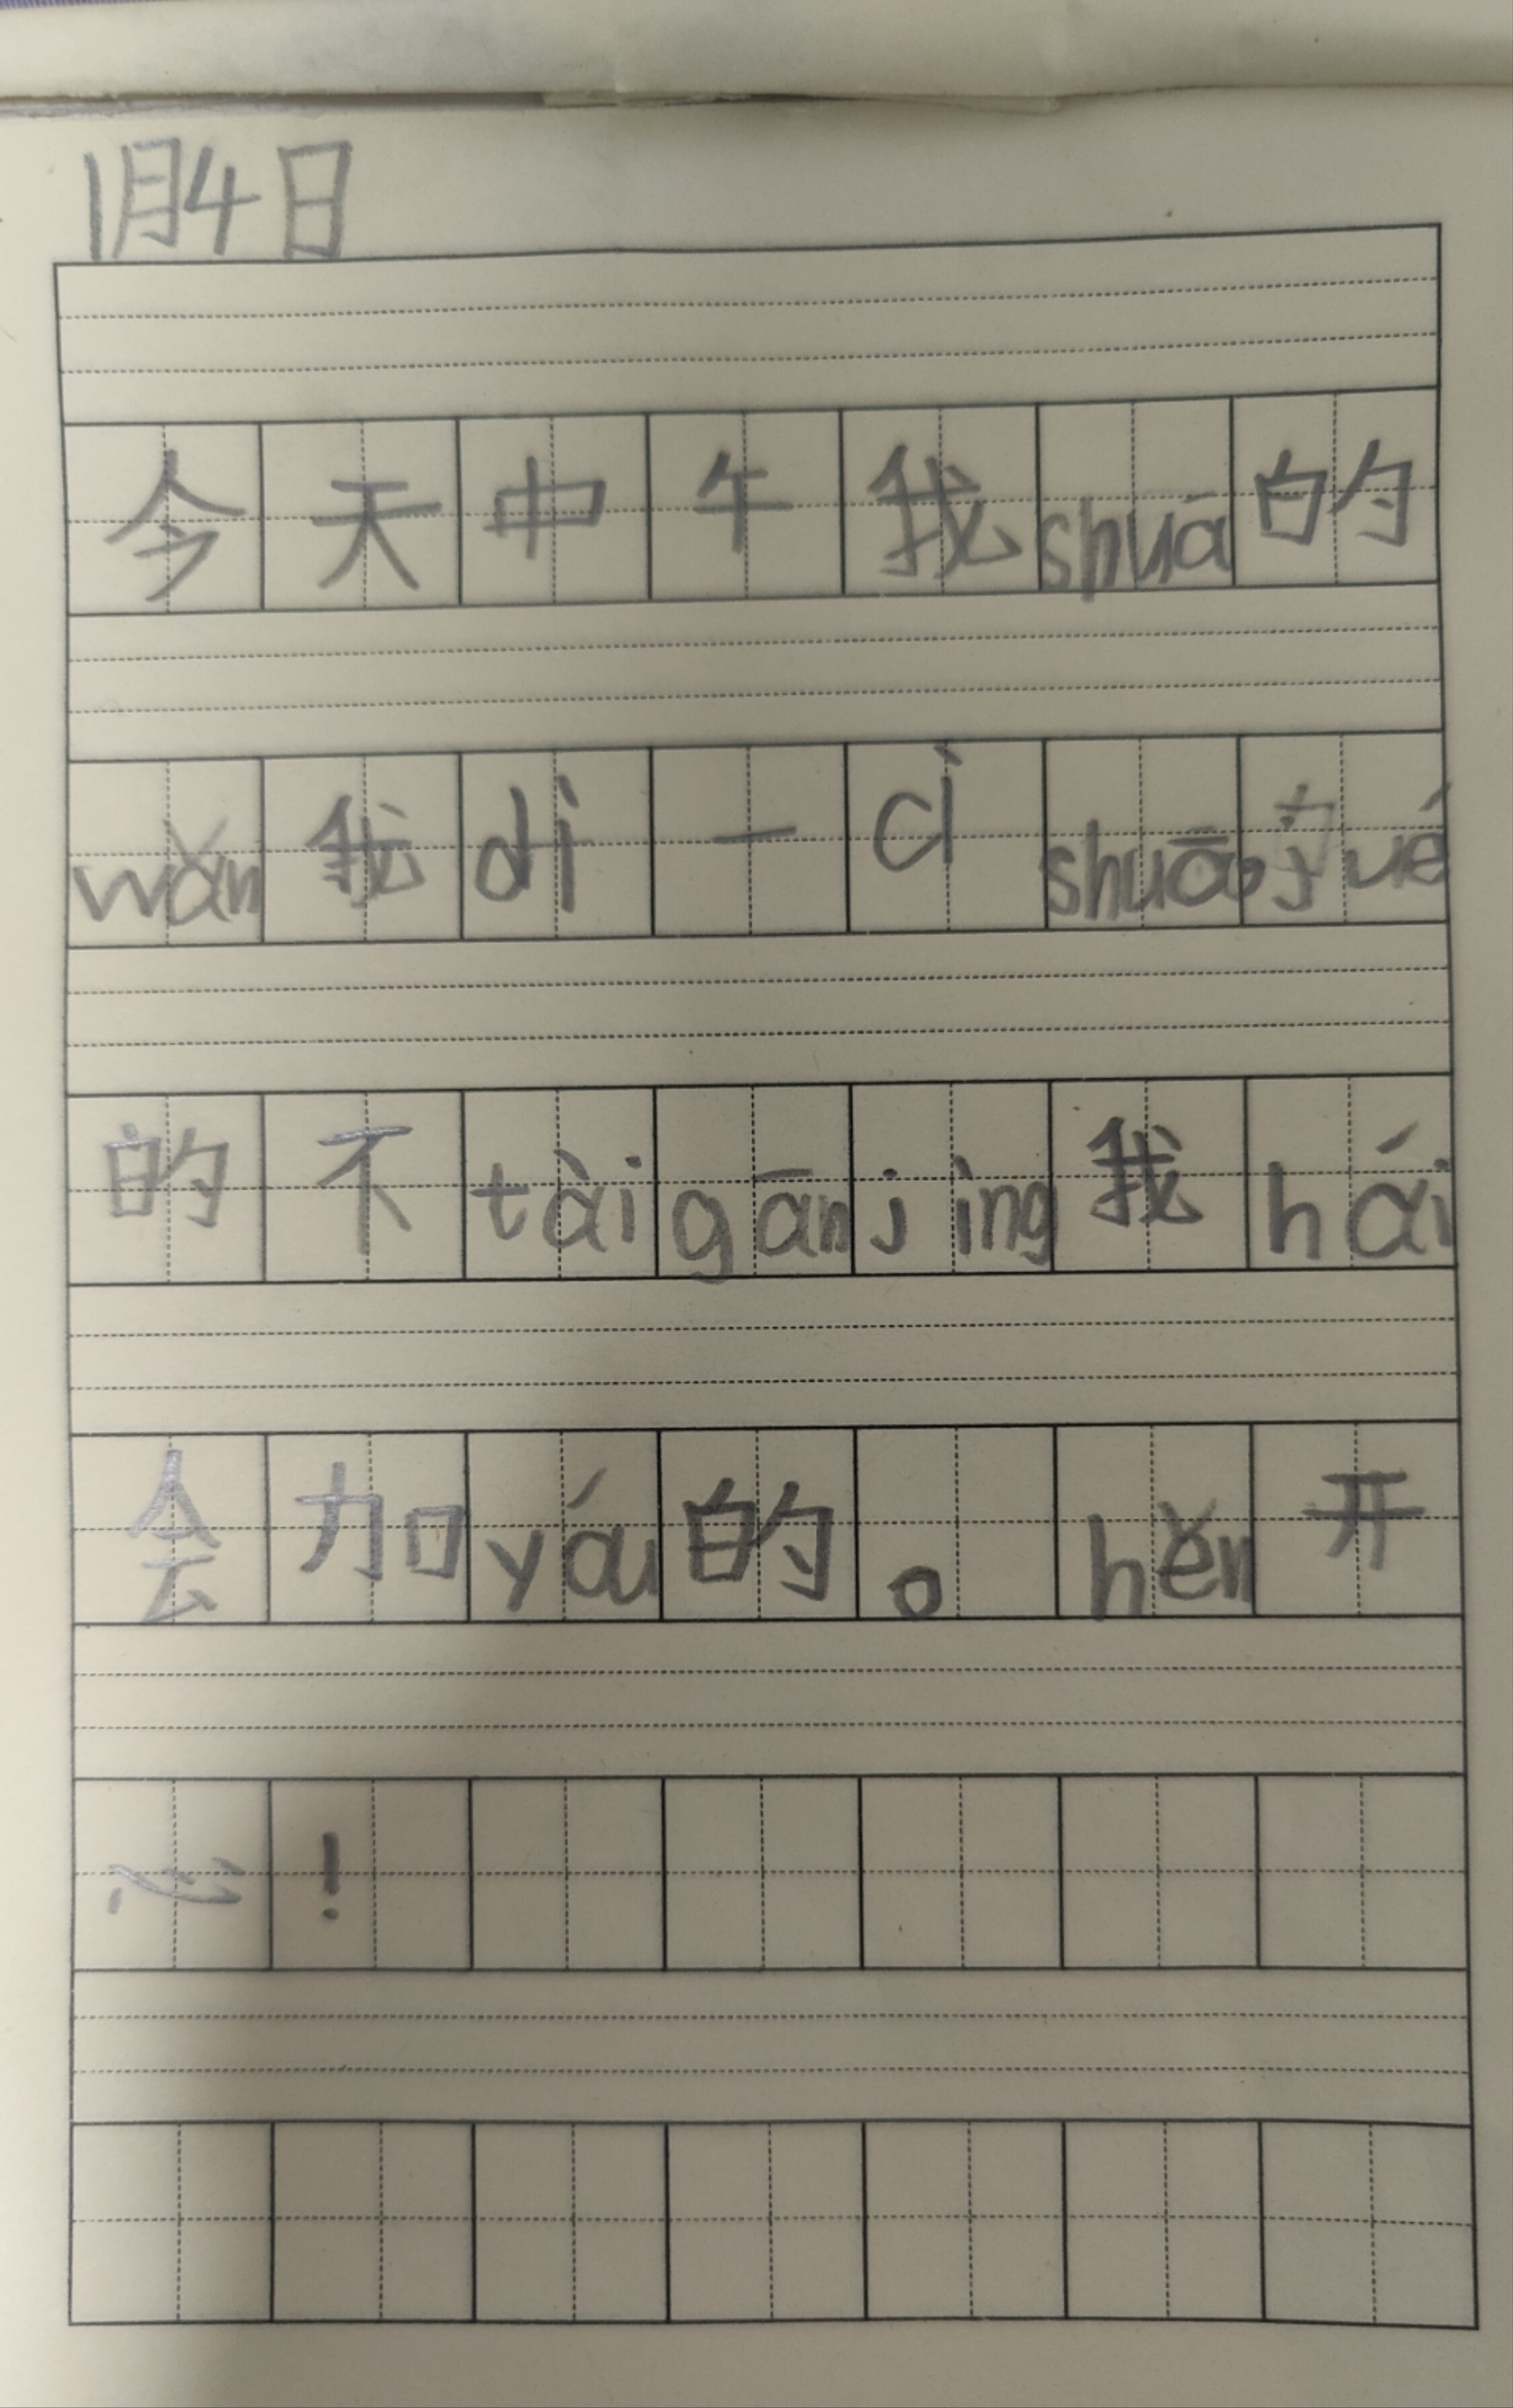 1月4日
今天中午我shuā的
wǎn我dì一cì shuā jué
的不tài gān jìng我hái
会加yóu的。hěn开
心!